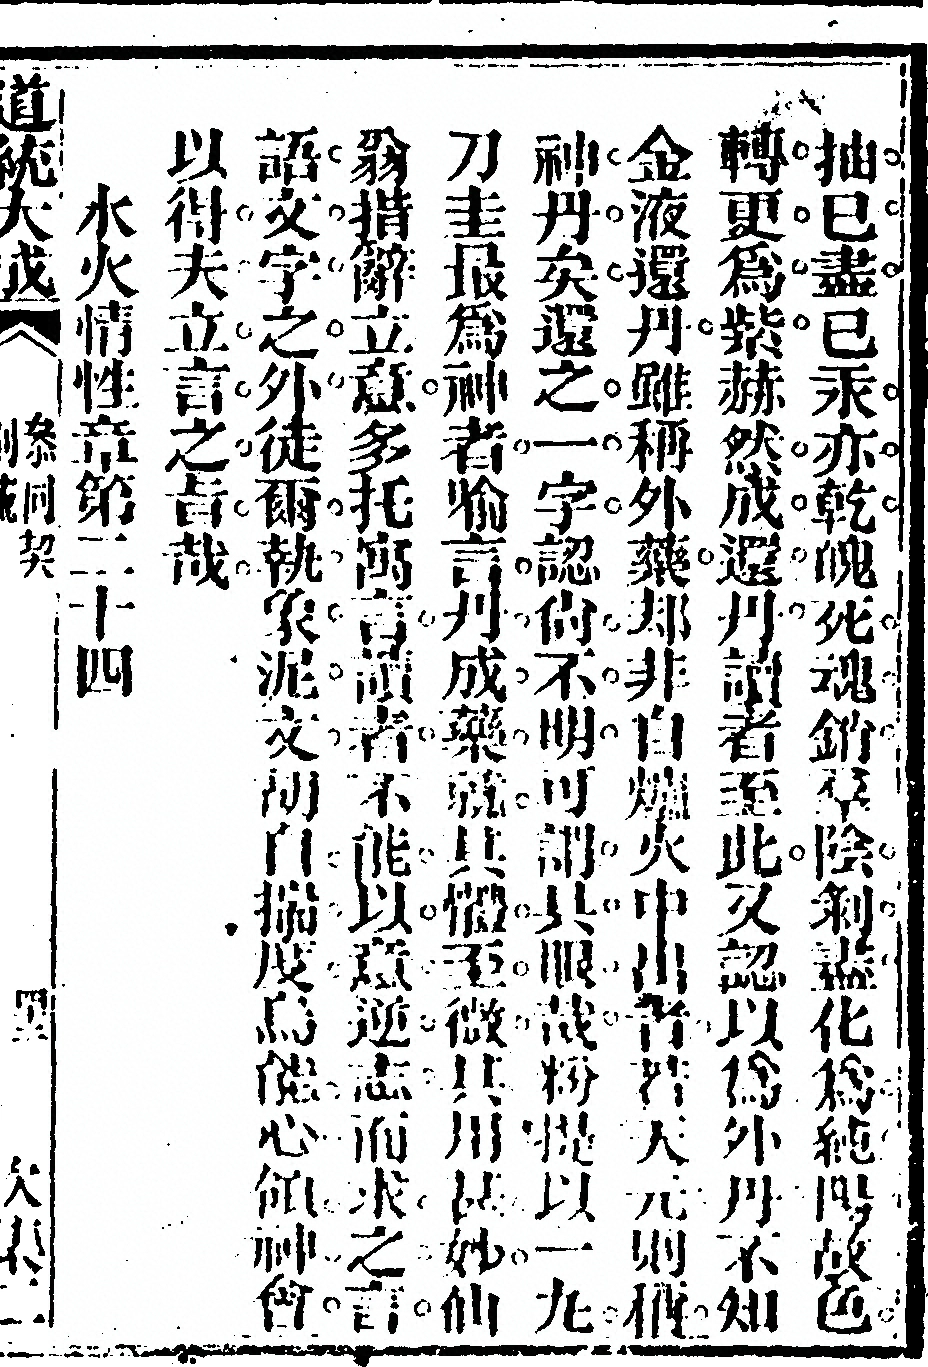 抽已盡已汞亦乾魄死魂銷羣陰剝盡化爲純陽故色
轉更爲紫赫然成還丹讀者至此又認以爲外丹不知
金液還丹雖稱外藥却非自爐火中出者若天元則稱
神丹矣還之一字認尙不明可謂具眼哉粉提以一丸
刀圭最爲神者喻言丹成藥就其體至微其用甚妙仙
翁措辭立意多托寓言讀者不能以意逆志而求之言
語文字之外徒爾執象泥文胡自揣度烏能心領神會
以得夫立言之旨哉
水火情性章第二十四
道統大成
參同契